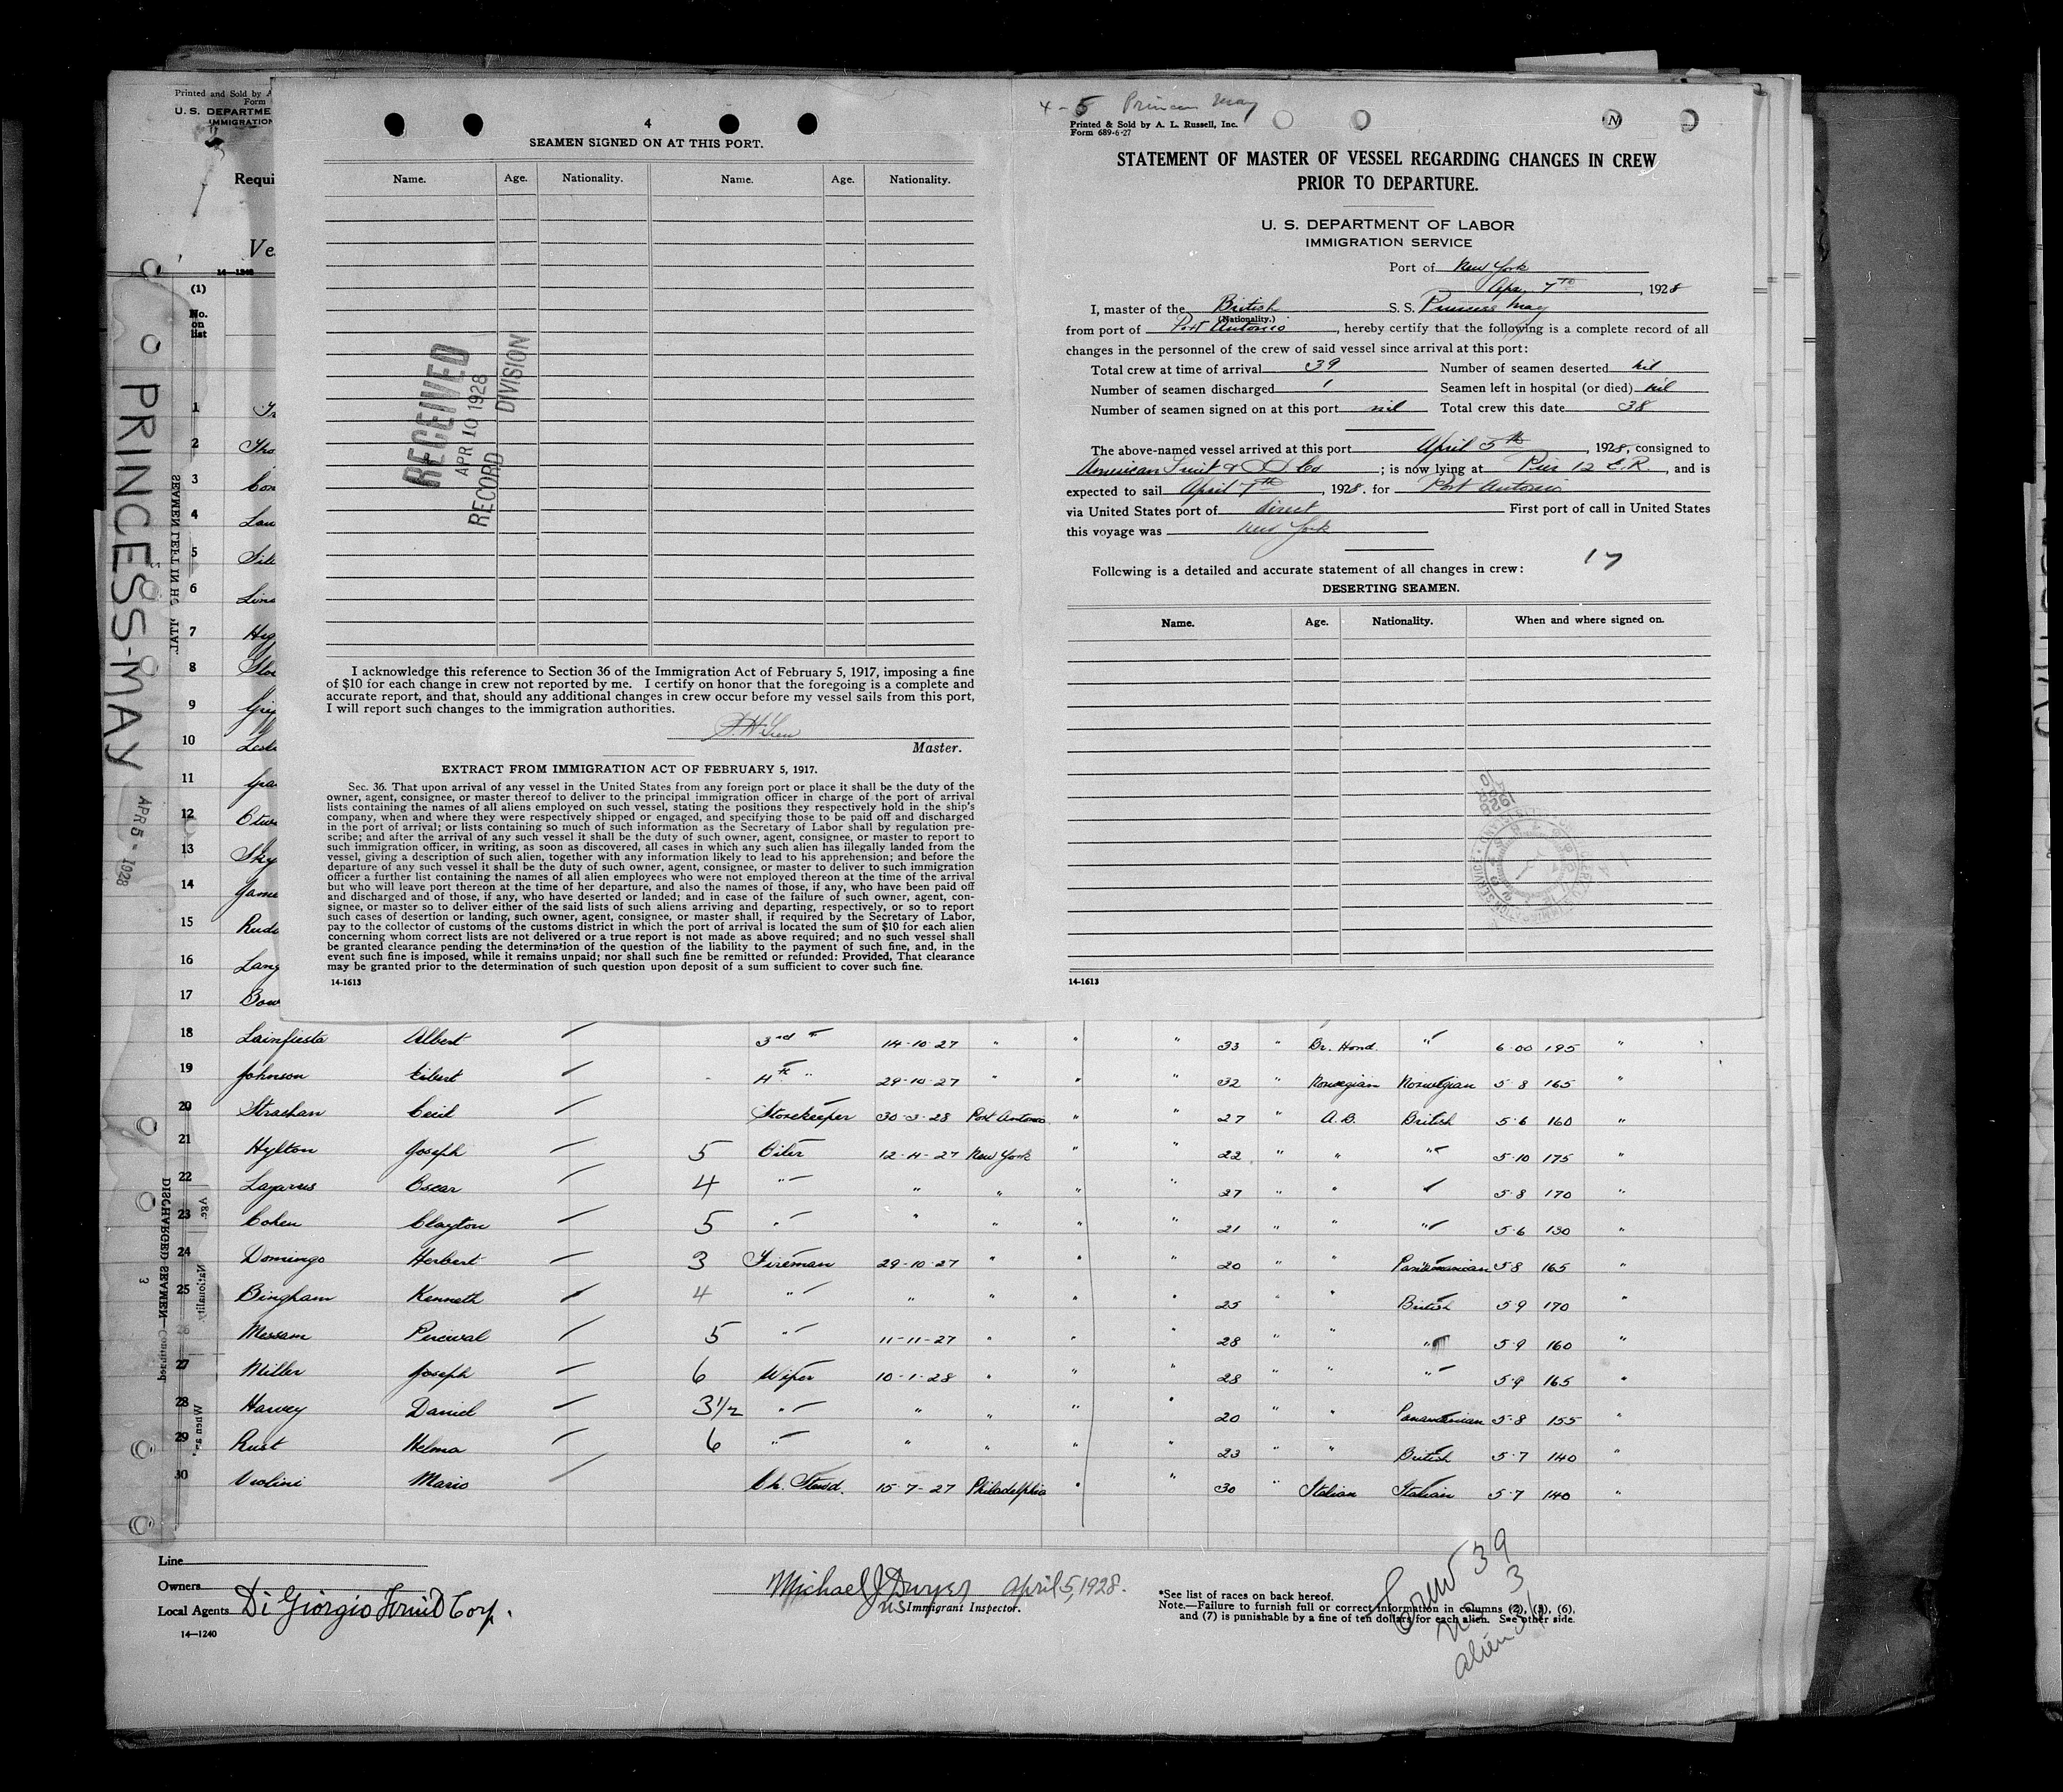 Printed and Sold by A
Form
U. S. DEPARTME
IMMIGRATION
Requi
Ve
14—1240
(1)
No.
on
list
PRINCESS-MAY
APR 5 - 1928
SEAMEN LEFT IN HO
DISCHARGED SEAMEN—Continued
3
Nationality
1
2 Tho
3
4 Lau
5
6
7
8
9
10
11
12
13
14 Jame
15
16 Lang
17 Bow
4
SEAMEN SIGNED ON AT THIS PORT.
Name. Age. Nationality. Name. Age. Nationality.
RECEIVED
APR 10 1928
RECORD DIVISION
I acknowledge this reference to Section 36 of the Immigration Act of February 5, 1917, imposing a fine
of $10 for each change in crew not reported by me. I certify on honor that the foregoing is a complete and
accurate report, and that, should any additional changes in crew occur before my vessel sails from this port,
I will report such changes to the immigration authorities.
Master.
EXTRACT FROM IMMIGRATION ACT OF FEBRUARY 5, 1917.
Sec. 36. That upon arrival of any vessel in the United States from any foreign port or place it shall be the duty of the
owner, agent, consignee, or master thereof to deliver to the principal immigration officer in charge of the port of arrival
lists containing the names of all aliens employed on such vessel, stating the positions they respectively hold in the ship's
company, when and where they were respectively shipped or engaged, and specifying those to be paid off and discharged
in the port of arrival; or lists containing so much of such information as the Secretary of Labor shall by regulation pre-
scribe; and after the arrival of any such vessel it shall be the duty of such owner, agent, consignee, or master to report to
such immigration officer, in writing, as soon as discovered, all cases in which any such alien has illegally landed from the
vessel, giving a description of such alien, together with any information likely to lead to his apprehension; and before the
departure of any such vessel it shall be the duty of such owner, agent, consignee, or master to deliver to such immigration
officer a further list containing the names of all alien employees who were not employed thereon at the time of the arrival
but who will leave port thereon at the time of her departure, and also the names of those, if any, who have been paid off
and discharged and of those, if any, who have deserted or landed; and in case of the failure of such owner, agent, con-
signee, or master so to deliver either of the said lists of such aliens arriving and departing, respectively, or so to report
such cases of desertion or landing, such owner, agent, consignee, or master shall, if required by the Secretary of Labor,
pay to the collector of customs of the customs district in which the port of arrival is located the sum of $10 for each alien
concerning whom correct lists are not delivered or a true report is not made as above required; and no such vessel shall
be granted clearance pending the determination of the question of the liability to the payment of such fine, and, in the
event such fine is imposed, while it remains unpaid; nor shall such fine be remitted or refunded: Provided, That clearance
may be granted prior to the determination of such question upon deposit of a sum sufficient to cover such fine.
14-1613
4-5 Princess May
Printed & Sold by A. L. Russell, Inc.
Form 689-6-27
N
STATEMENT OF MASTER OF VESSEL REGARDING CHANGES IN CREW
PRIOR TO DEPARTURE.
U. S. DEPARTMENT OF LABOR
IMMIGRATION SERVICE
Port of New York
Apr. 7th, 1928
I, master of the British S. S. Princess May
(Nationality.)
from port of Port Antonio, hereby certify that the following is a complete record of all
changes in the personnel of the crew of said vessel since arrival at this port:
Total crew at time of arrival 39 Number of seamen deserted nil
Number of seamen discharged 1 Seamen left in hospital (or died) nil
Number of seamen signed on at this port nil Total crew this date 38
The above-named vessel arrived at this port April 5th, 1928, consigned to
American Fruit & SS Co; is now lying at Pier 12 E.R., and is
expected to sail April 7th, 1928. for Port Antonio
via United States port of direct First port of call in United States
this voyage was New York
17
Following is a detailed and accurate statement of all changes in crew:
DESERTING SEAMEN.
Name. Age. Nationality. When and where signed on.
14-1613
18 Lainfiesta Albert 3rd " 14-10-27 " " " 33 " Br. Hond. " 6.00 195 "
19 Johnson Eibert 4th " 29-10-27 " " " 32 " Norwegian Norwegian 5-8 165 "
20 Strachan Cecil Storekeeper 30-3-28 Port Antonio " " 27 " A.B. British 5-6 160 "
21 Hylton Joseph 5 Oiler 12-4-27 New York " " 22 " " " 5-10 175 "
22 Lazarus Oscar 4 " " " " " 27 " " " 5-8 170 "
23 Cohen Clayton 5 " " " " " 21 " " " 5-6 130 "
24 Domingo Herbert 3 Fireman 29-10-27 " " " 20 " " Panamanian 5-8 165 "
25 Bingham Kenneth 4 " " " " " 25 " " British 5-9 170 "
26 Messam Percival 5 " 11-11-27 " " " 28 " " " 5-9 160 "
27 Miller Joseph 6 Wiper 10-1-28 " " " 28 " " " 5-9 165 "
28 Harvey Daniel 3 1/2 " " " " " 20 " " Panamanian 5-8 155 "
29 Rust Helma 6 " " " " " 23 " " British 5-7 140 "
30 Violini Mario Ch. Stewd. 15-7-27 Philadelphia " " 30 " Italian Italian 5-7 140 "
Line
Owners
Local Agents Di Giorgio Fruit Corp.
14—1240
Michael J Dwyer April 5, 1928.
US Immigrant Inspector.
*See list of races on back hereof.
Note.—Failure to furnish full or correct information in columns (2), (3), (6),
and (7) is punishable by a fine of ten dollars for each alien. See other side.
Crew 39
US 3
alien